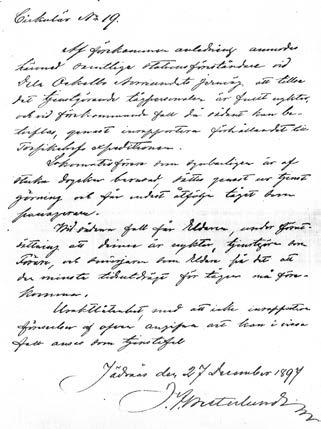 Cirkulär No 19.
Af förekommen anledning anmodas
härmed samtliga stationsföreståndare vid
Dala Ockelbo Norrsundets Jernväg att tillse
att tjenstgörande tågpersonalen är fullt nykter,
och vid förekommande fall då sådant kan be-
, genast inrapportera förhållandet till
Trafikchefs expeditionen.
Lokomotivförare som synbarligen är af
starka drycker berusad sättes genast ur tjenst
göring och får endast åtfölja tåget som
passagerare.
Vid sådana fall får Eldaren, under förut-
sättning att denne är nykter, tjenstgöra som
förare, och som Eldare på det att
den minsta tidsutdrägt för tågen må före-
komma.
Uraktlåtenhet, med att icke inrapportera
förseelser af ofvan angifven art kan i vissa
fall anses som tjenstefel
Jädraås den 27 December 1897